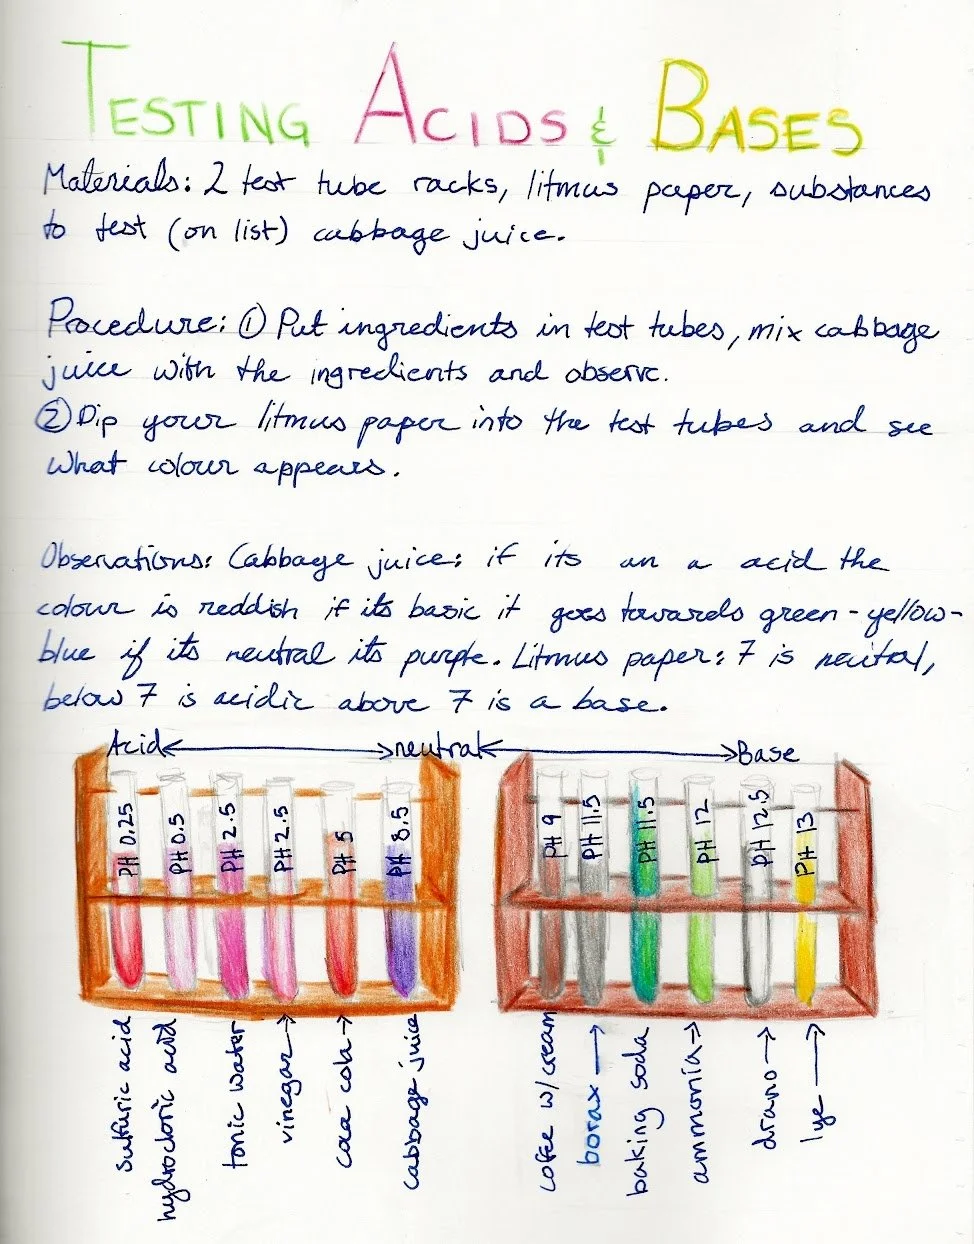 TESTING ACIDS & BASES
Materials: 2 test tube racks, litmus paper, substances
to test (on list) cabbage juice.
Procedure: ① Put ingredients in test tubes, mix cabbage
juice with the ingredients and observe.
② Dip your litmus paper into the test tubes and see
what colour appears.
Observations: Cabbage juice: if its an a acid the
colour is reddish if its basic it goes towards green-yellow-
blue if its neutral its purple. Litmus paper: 7 is neutral,
below 7 is acidic above 7 is a base.
Acid ↔ neutral ↔ Base
PH 0.25
PH 0.5
PH 2.5
PH 2.5
PH 5
PH 8.5
PH 9
PH 11.5
PH 11.5
PH 12
PH 12.5
PH 13
sulfuric acid
hydrocloric acid
tonic water
vinegar →
coca cola →
cabbage juice
coffee w/cream
borax →
baking soda
ammonia →
drano →
lye →